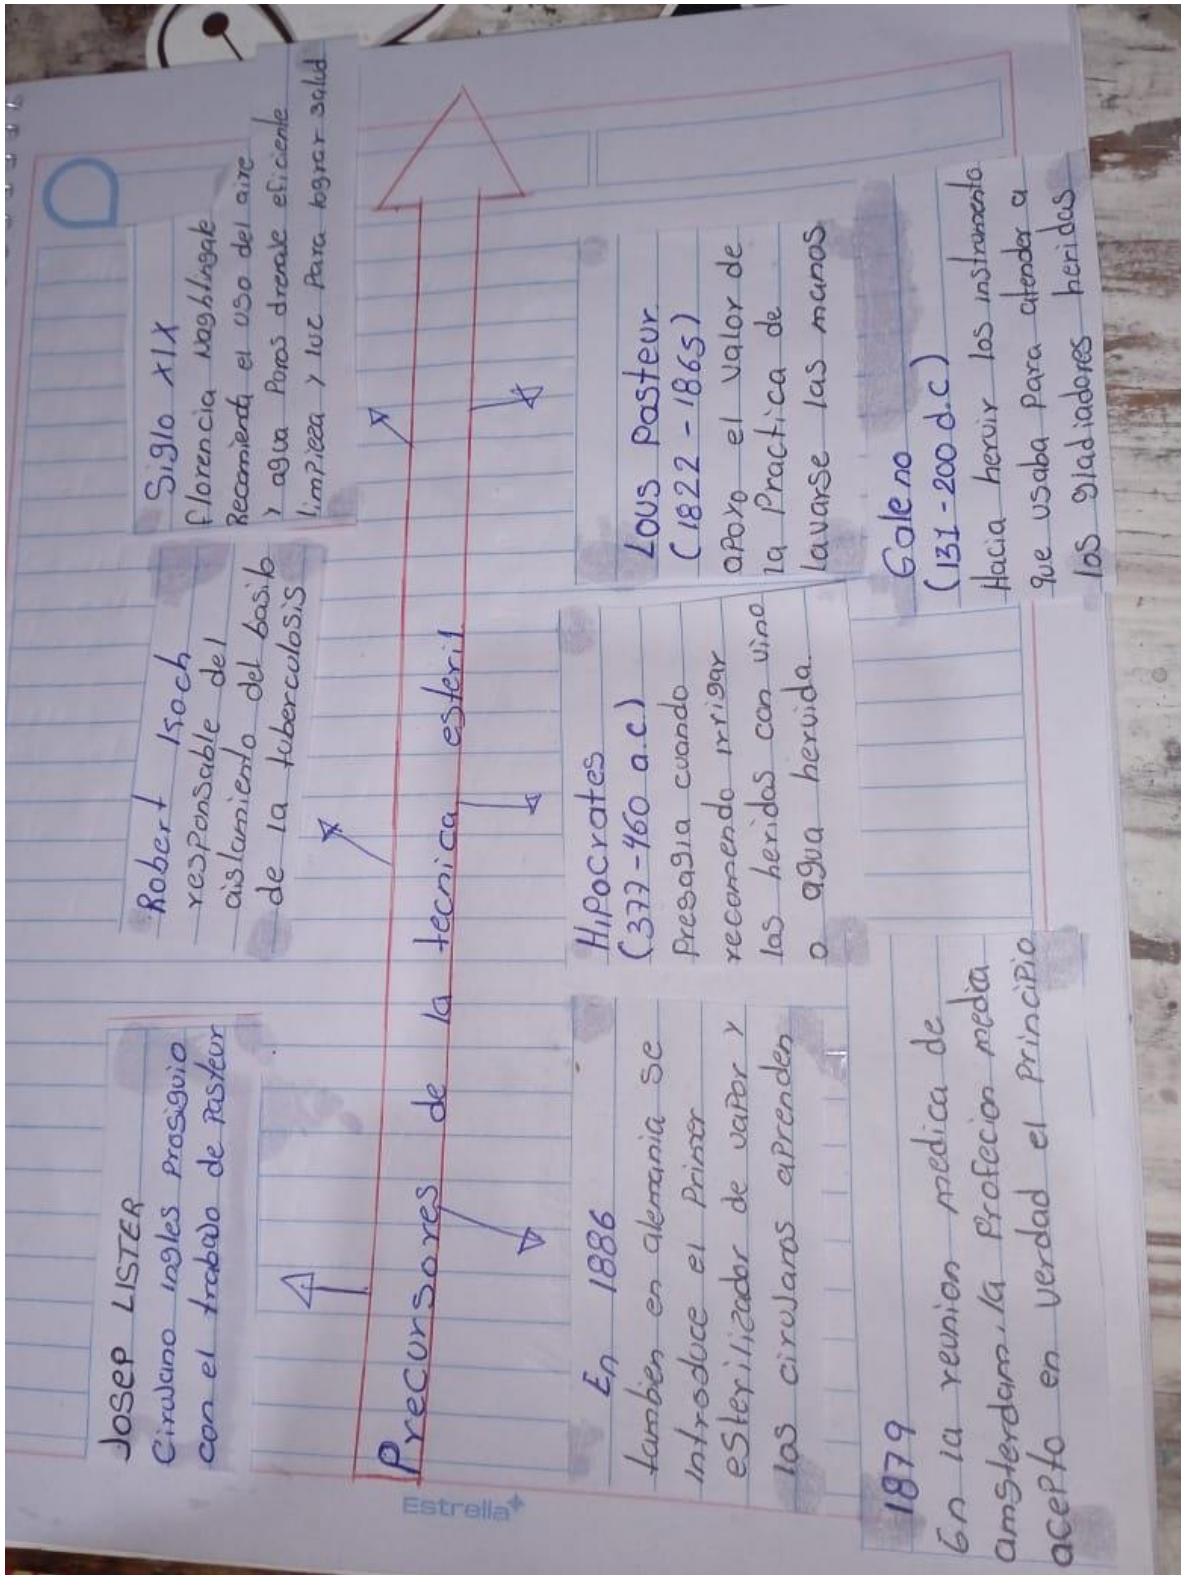 JOSEP LISTER
Cirujano ingles prosiguio
con el trabajo de Pasteur
Robert Koch
responsable del
aislamiento del basilo
de la tuberculosis
Siglo XIX
Florencia Naghtingale
Recomienda el uso del aire
y agua Poros drenale eficiente
limpieza y luc Para lograr salud
Precursores de la tecnica esteril
En 1886
tambien en alemania se
introduce el Primer
esterilizador de vapor y
los cirujanos aprenden
Hipocrates
(377-460 a.c)
Presagia cuando
recomendo irrigar
las heridas con vino
o agua hervida
Lous Pasteur
(1822-1865)
apoyo el valor de
la Practica de
lavarse las manos
1879
En la reunion medica de
amsterdam, la Profecion media
acepto en verdad el principio
Galeno
(131-200 d.c)
Hacia hervir los instrumento
que usaba para atender a
los gladiadores heridas
Estrella